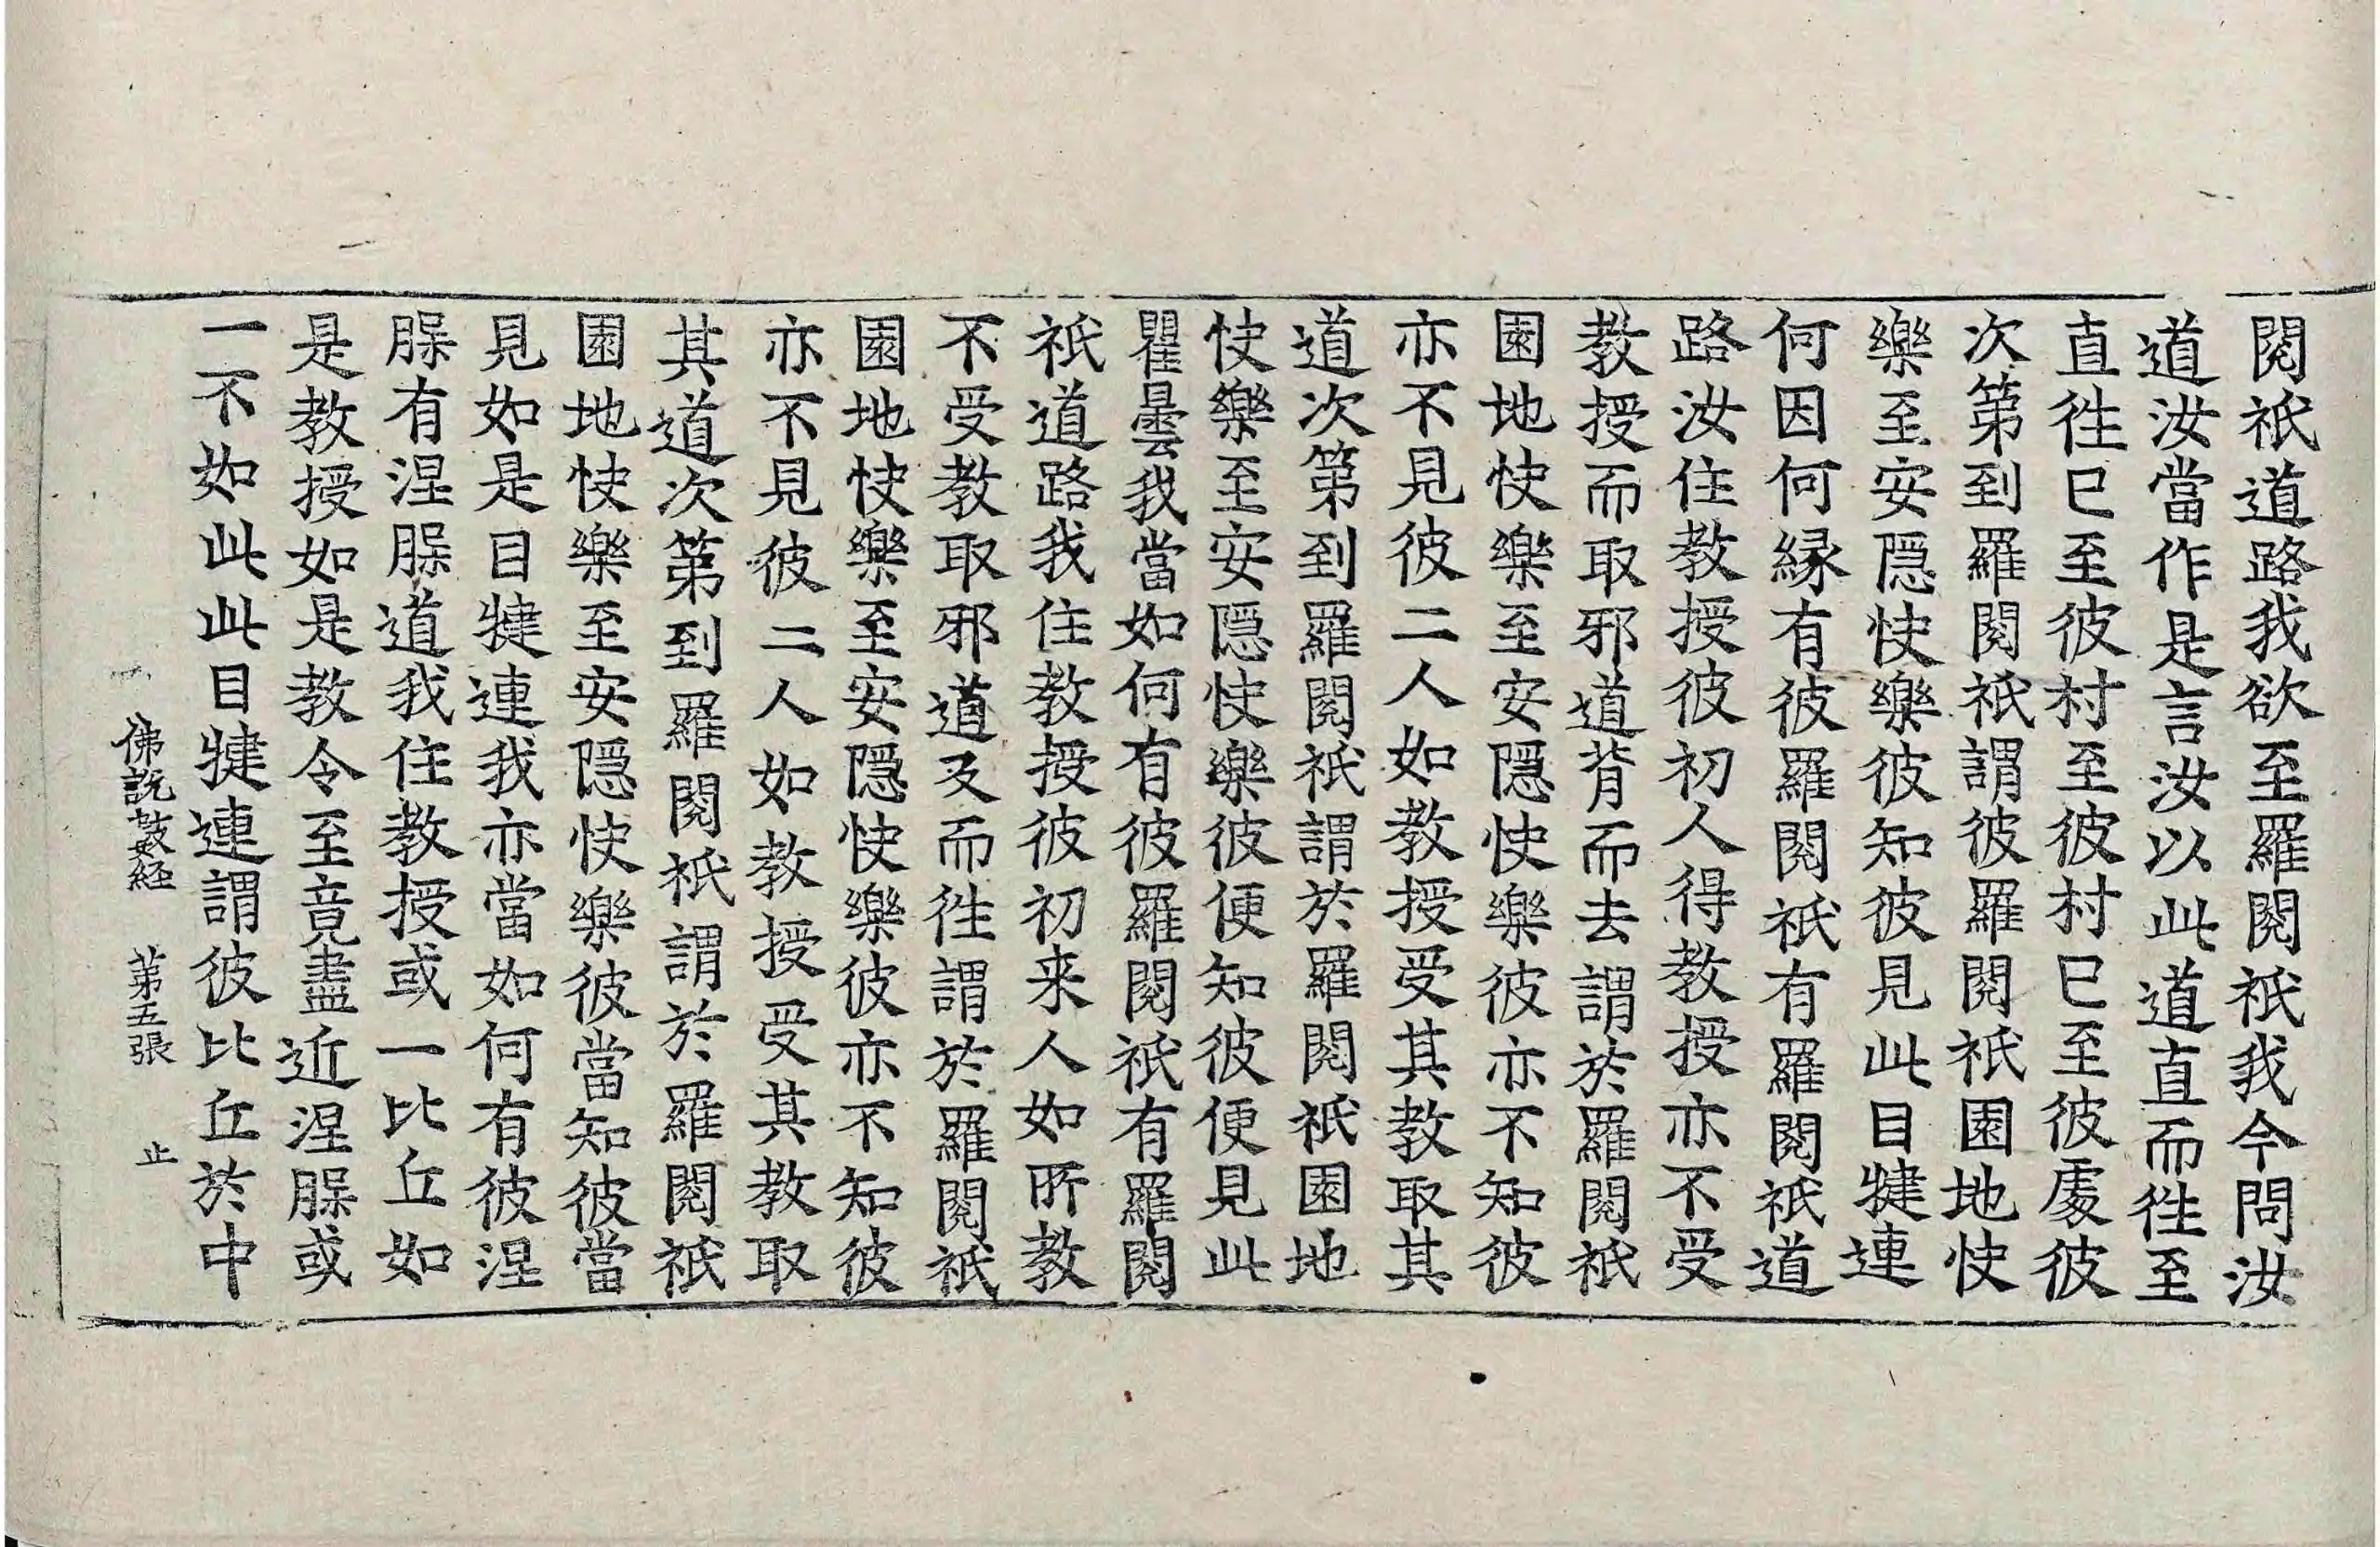 閱祇道路我欲至羅閱祇我今問汝
道汝當作是言汝以此道直而徃至
直徃已至彼村至彼村已至彼處彼
次第到羅閱祇謂彼羅閱祇園地快
樂至安隱快樂彼知彼見此目揵連
何因何緣有彼羅閱祇有羅閱祇道
路汝住教授彼初人得教授亦不受
教授而取邪道背而去謂於羅閱祇
園地快樂至安隱快樂彼亦不知彼
亦不見彼二人如教授受其教取其
道次第到羅閱祇謂於羅閱祇園地
快樂至安隱快樂彼便知彼便見此
瞿曇我當如何有彼羅閱祇有羅閱
祇道路我住教授彼初来人如所教
不受教取邪道及而徃謂於羅閱祇
園地快樂至安隱快樂彼亦不知彼
亦不見彼二人如教授受其教取
其道次第到羅閱祇謂於羅閱祇
園地快樂至安隱快樂彼當知彼當
見如是目揵連我亦當如何有彼涅
槃有涅槃道我住教授或一比丘如
是教授如是教令至竟盡近涅槃或
一不如此此目揵連謂彼比丘於中
佛說數經 第五張 止